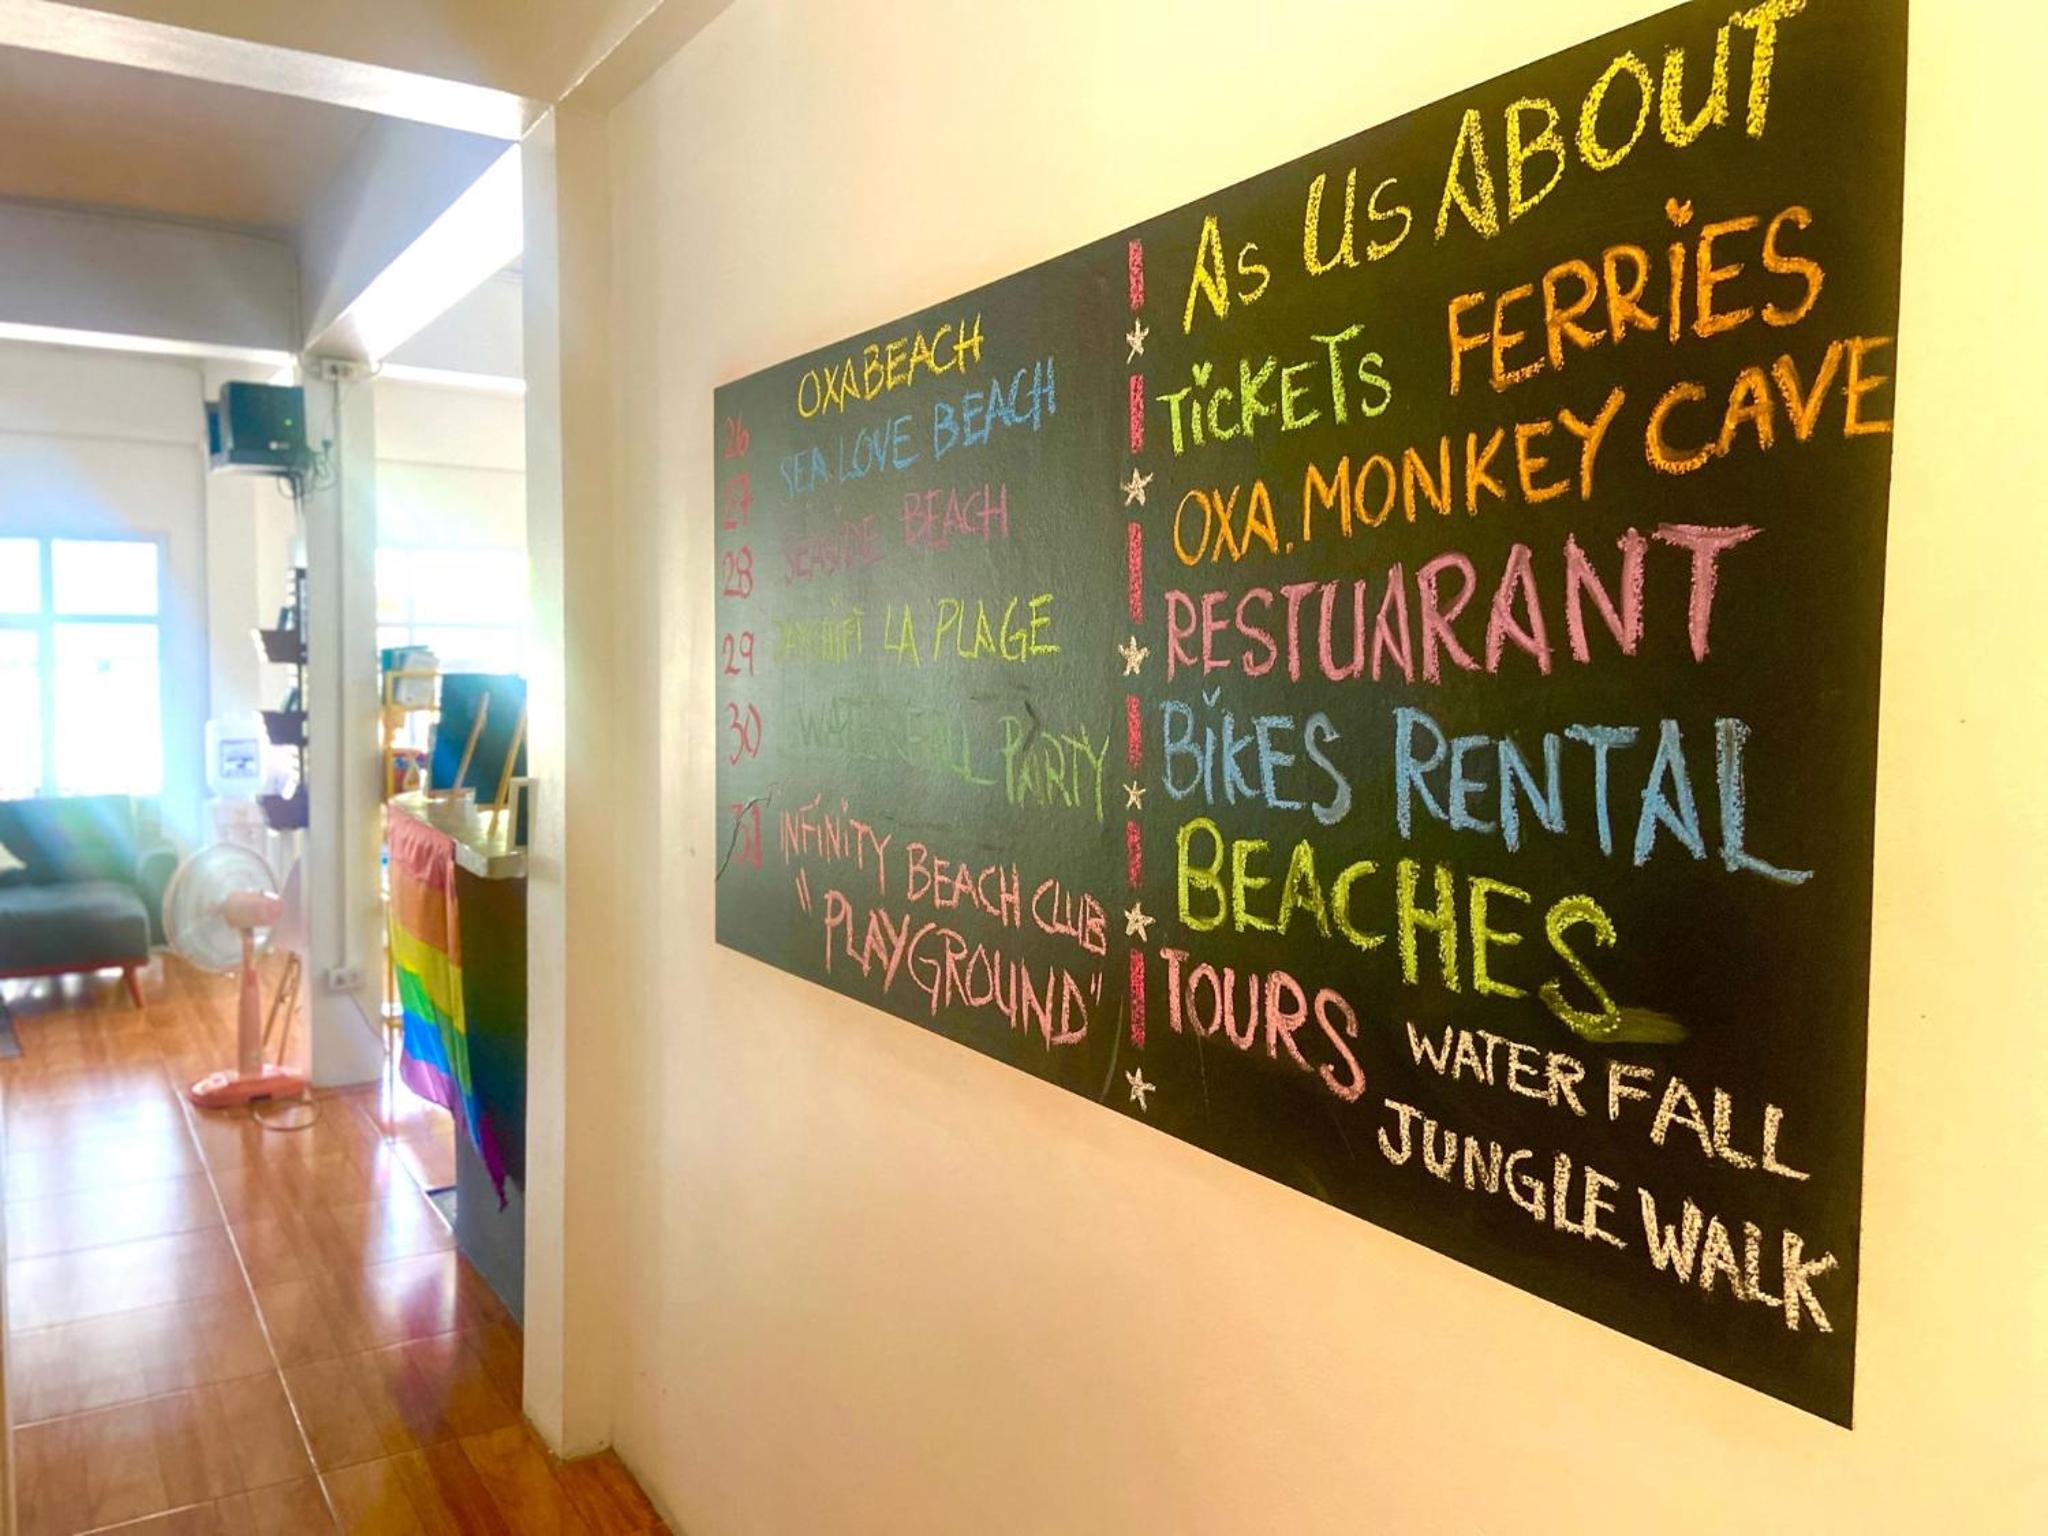 26 OXA BEACH
27 SEA LOVE BEACH
28 SEASIDE BEACH
29 LA PLAGE
30 WATERFALL PARTY
31 INFINITY BEACH CLUB
"PLAYGROUND"
AS US ABOUT
TICKETS FERRIES
OXA. MONKEY CAVE
RESTUARANT
BIKES RENTAL
BEACHES
TOURS WATER FALL
JUNGLE WALK